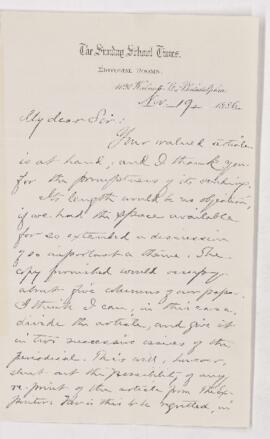 The Sunday School Times.
EDITORIAL ROOMS.
Philadelphia
Nov. 19, 1886
My dear Sir:
Your valued article
is at hand, and I thank you
for the promptness of its sending.
Its length would be no objection,
if we had the space available
for so extended a discussion
of so important a theme. The
copy furnished would occupy
about five columns of our paper.
I think I can, in this case,
divide the article, and give it
in two successive issues of the
periodical. This will, however,
shut out the possibility of any
re-print of the article from
this is to be regretted, in